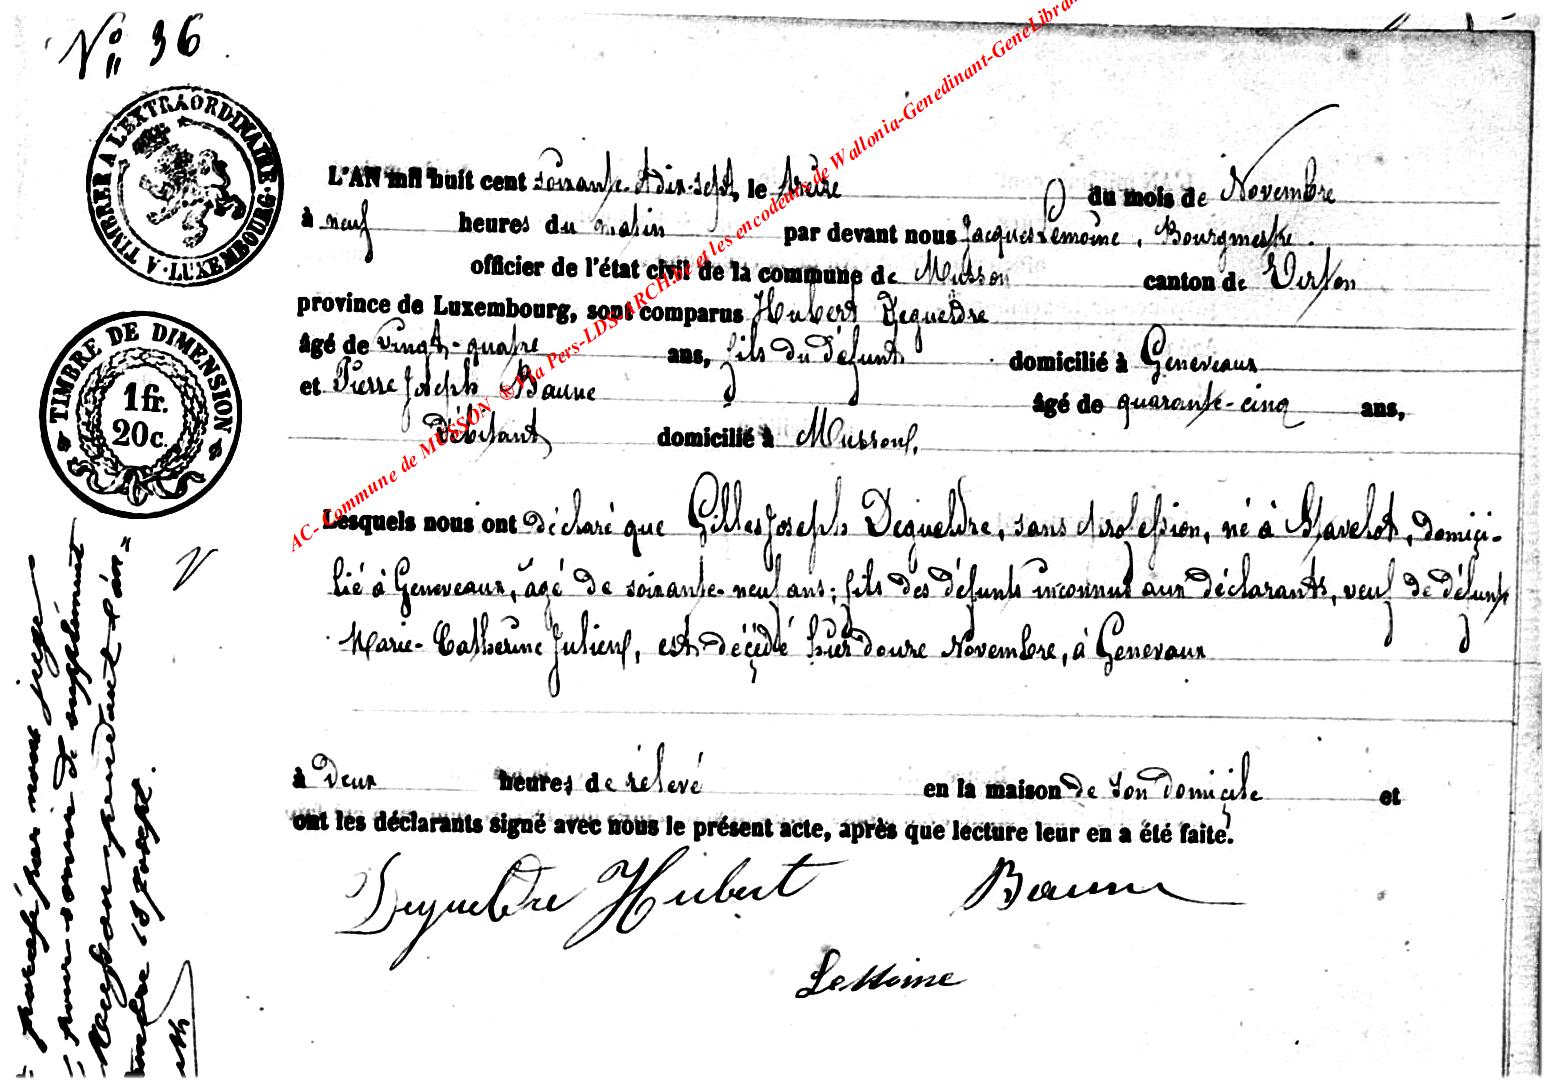 No 36
TIMBRE A L'EXTRAORDINAIRE · LUXEMBOURG ·
L'AN mil huit cent soixante-dix-sept, le treize du mois de Novembre
à neuf heures du matin par devant nous Jacques Lemoine, Bourgmestre.
officier de l'état civil de la commune de Musson canton de Virton
province de Luxembourg, sont comparus Hubert Degueldre
âgé de vingt-quatre ans, fils du défunt domicilié à Geneveaux
et Pierre Joseph Baune âgé de quarante-cinq ans,
débitant domicilié à Musson,
TIMBRE DE DIMENSION
1 fr.
20 c.
Lesquels nous ont déclaré que Gilles Joseph Degueldre, sans profession, né à Stavelot, domici-
lié à Geneveaux, âgé de soixante-neuf ans; fils des défunts inconnus aux déclarants, veuf de défunte
Marie-Catherine Julien, est décédé hier douze Novembre, à Genevaux
à deux heures de relevé en la maison de son domicile et
ont les déclarants signé avec nous le présent acte, après que lecture leur en a été faite.
Degueldre Hubert
Lemoine
parafé par nous juge
pour servir de supplément
AC- Commune de MUSSON ® Via Pers-LDS-ARCH.be et les encodeurs de Wallonia-Genedinant-GeneLibran